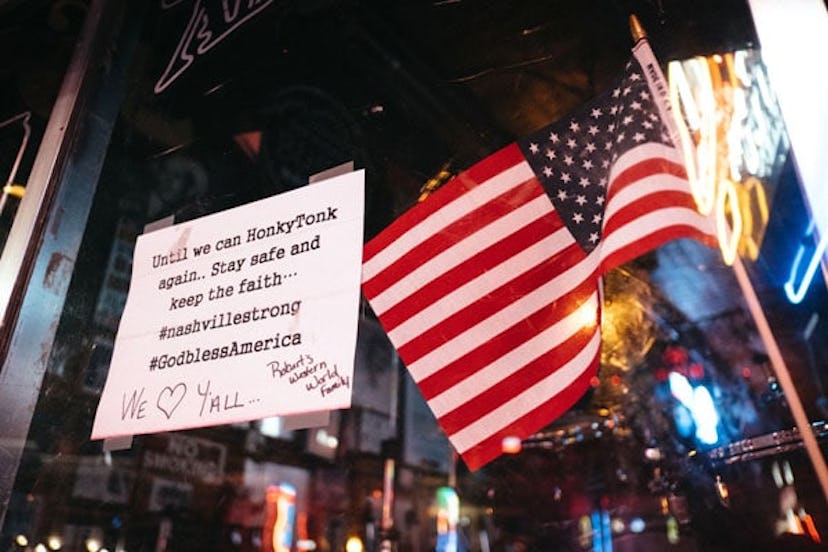 Until we can HonkyTonk
again.. Stay safe and
keep the faith...
#nashvillestrong
#GodblessAmerica
We ♡ Y'all...
Robert's
Western
World
Family
NO
SMOKING